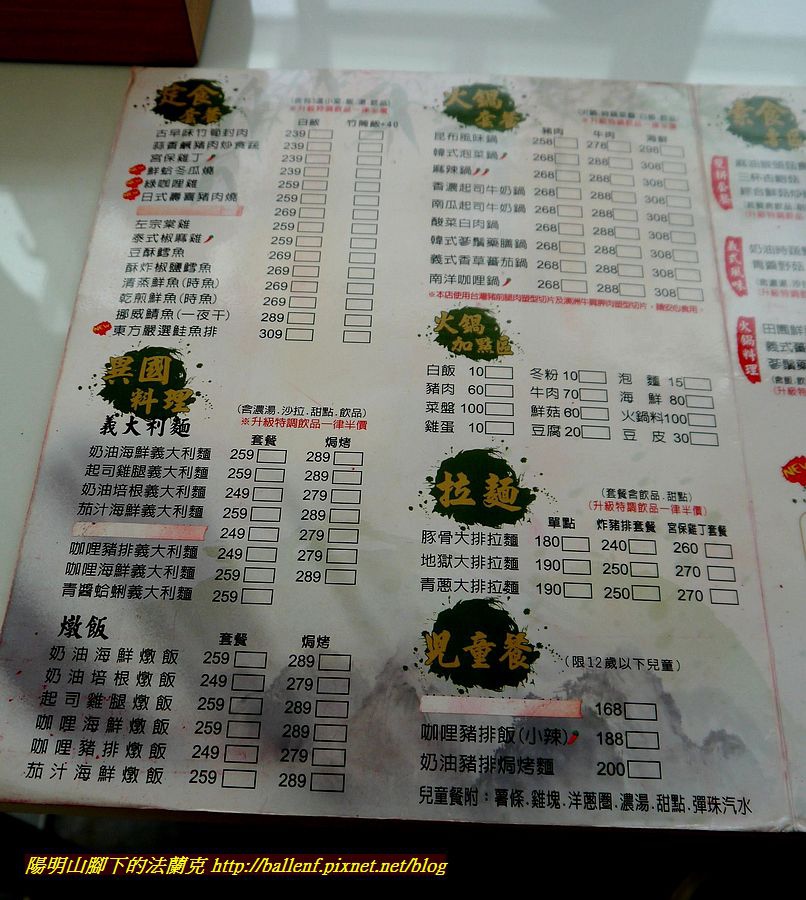 定食 套餐
(含特3選小菜.飯.湯.飲品)
※升級特調飲品一律半價
白飯 竹筒飯+40
古早味竹筍封肉 239
蒜香鹹豬肉炒食蔬 239
宮保雞丁 239
NEW 鮮蛤冬瓜燒 239
NEW 綠咖哩雞 259
NEW 日式壽喜豬肉燒 259
269
左宗棠雞 269
泰式椒麻雞 259
豆酥鱈魚 259
酥炸椒鹽鱈魚 269
清蒸鮮魚(時魚) 269
乾煎鮮魚(時魚) 269
挪威鯖魚(一夜干) 289
NEW 東方嚴選鮭魚排 309
異國料理
(含濃湯.沙拉.甜點.飲品)
※升級特調飲品一律半價
義大利麵
套餐 焗烤
奶油海鮮義大利麵 259 289
起司雞腿義大利麵 259 289
奶油培根義大利麵 249 279
茄汁海鮮義大利麵 259 289
249 279
咖哩豬排義大利麵 249 279
咖哩海鮮義大利麵 259 289
青醬蛤蜊義大利麵 259
燉飯
套餐 焗烤
奶油海鮮燉飯 259 289
奶油培根燉飯 249 279
起司雞腿燉飯 259 289
咖哩海鮮燉飯 259 289
咖哩豬排燉飯 249 279
茄汁海鮮燉飯 259 289
火鍋 套餐
※升級特調飲品一律半價
豬肉 牛肉 海鮮
昆布風味鍋 258 278 298
韓式泡菜鍋 268 288 308
麻辣鍋 268 288 308
香濃起司牛奶鍋 268 288 308
南瓜起司牛奶鍋 268 288 308
酸菜白肉鍋 268 288 308
韓式蔘鬚藥膳鍋 268 288 308
義式香草蕃茄鍋 268 288 308
南洋咖哩鍋 268 288 308
※本店使用台灣豬前腿肉塑型切片及澳洲牛肩胛肉塑型切片，請安心食用。
火鍋加點區
白飯 10 冬粉 10 泡麵 15
豬肉 60 牛肉 70 海鮮 80
菜盤 100 鮮菇 60 火鍋料 100
雞蛋 10 豆腐 20 豆皮 30
拉麵
(套餐含飲品.甜點)
(升級特調飲品一律半價)
單點 炸豬排套餐 宮保雞丁套餐
豚骨大排拉麵 180 240 260
地獄大排拉麵 190 250 270
青蔥大排拉麵 190 250 270
兒童餐 (限12歲以下兒童)
168
咖哩豬排飯(小辣) 188
奶油豬排焗烤麵 200
兒童餐附：薯條.雞塊.洋蔥圈.濃湯.甜點.彈珠汽水
素食
雙拼套餐
義式風味
火鍋料理
NEW
陽明山腳下的法蘭克 http://ballenf.pixnet.net/blog